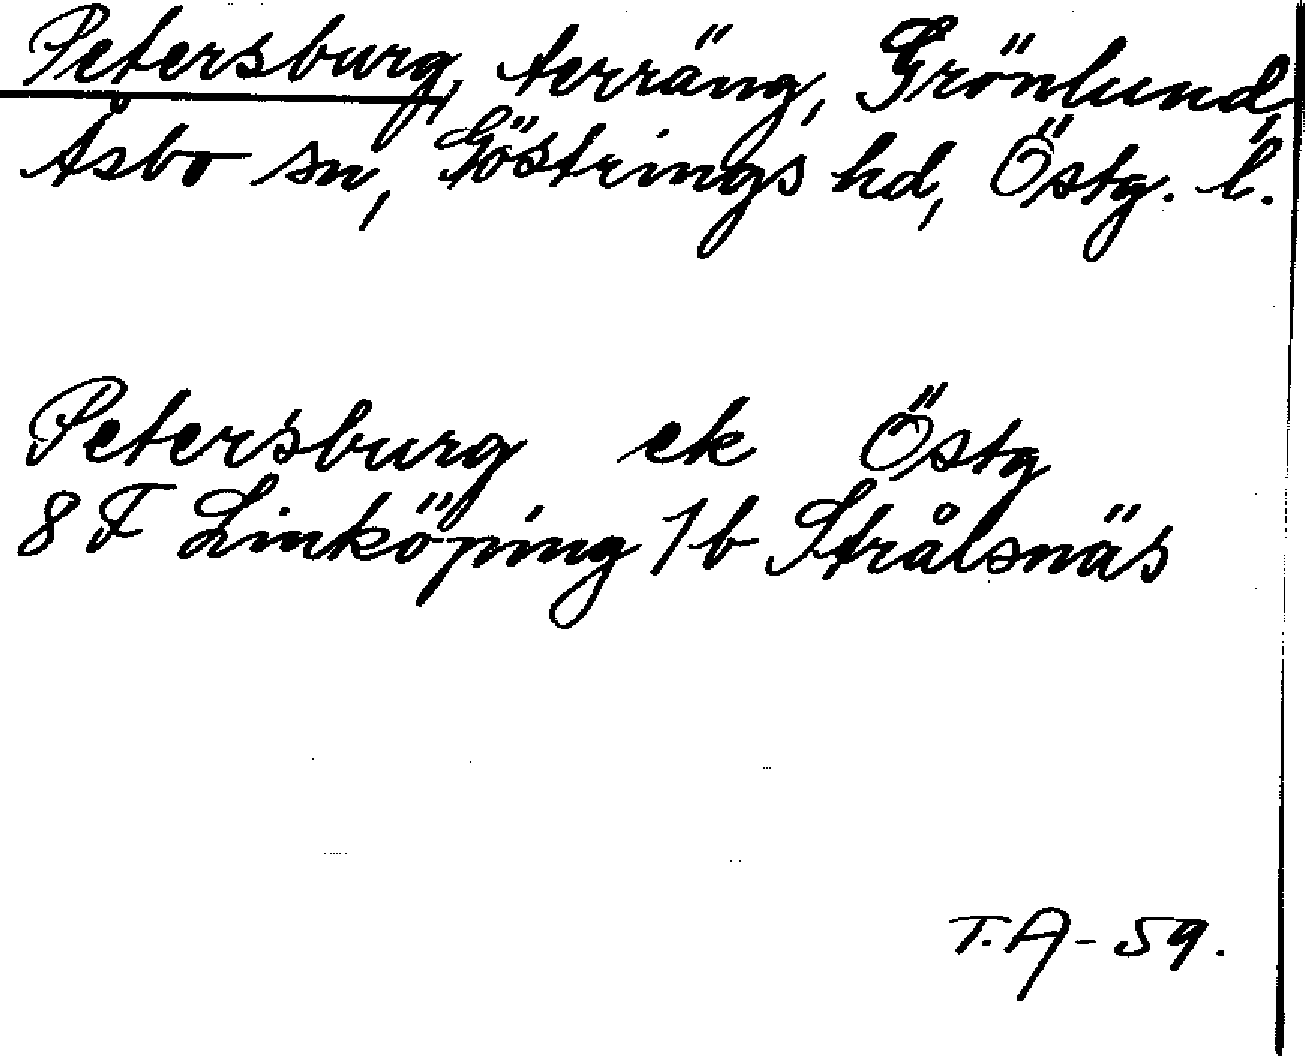 Petersburg, terräng, Grönlund,
Åsbo sn, Göstrings hd, Östg. l.
Petersburg ek Östg
8 F Linköping 1b Strålsnäs
T.A - 59.